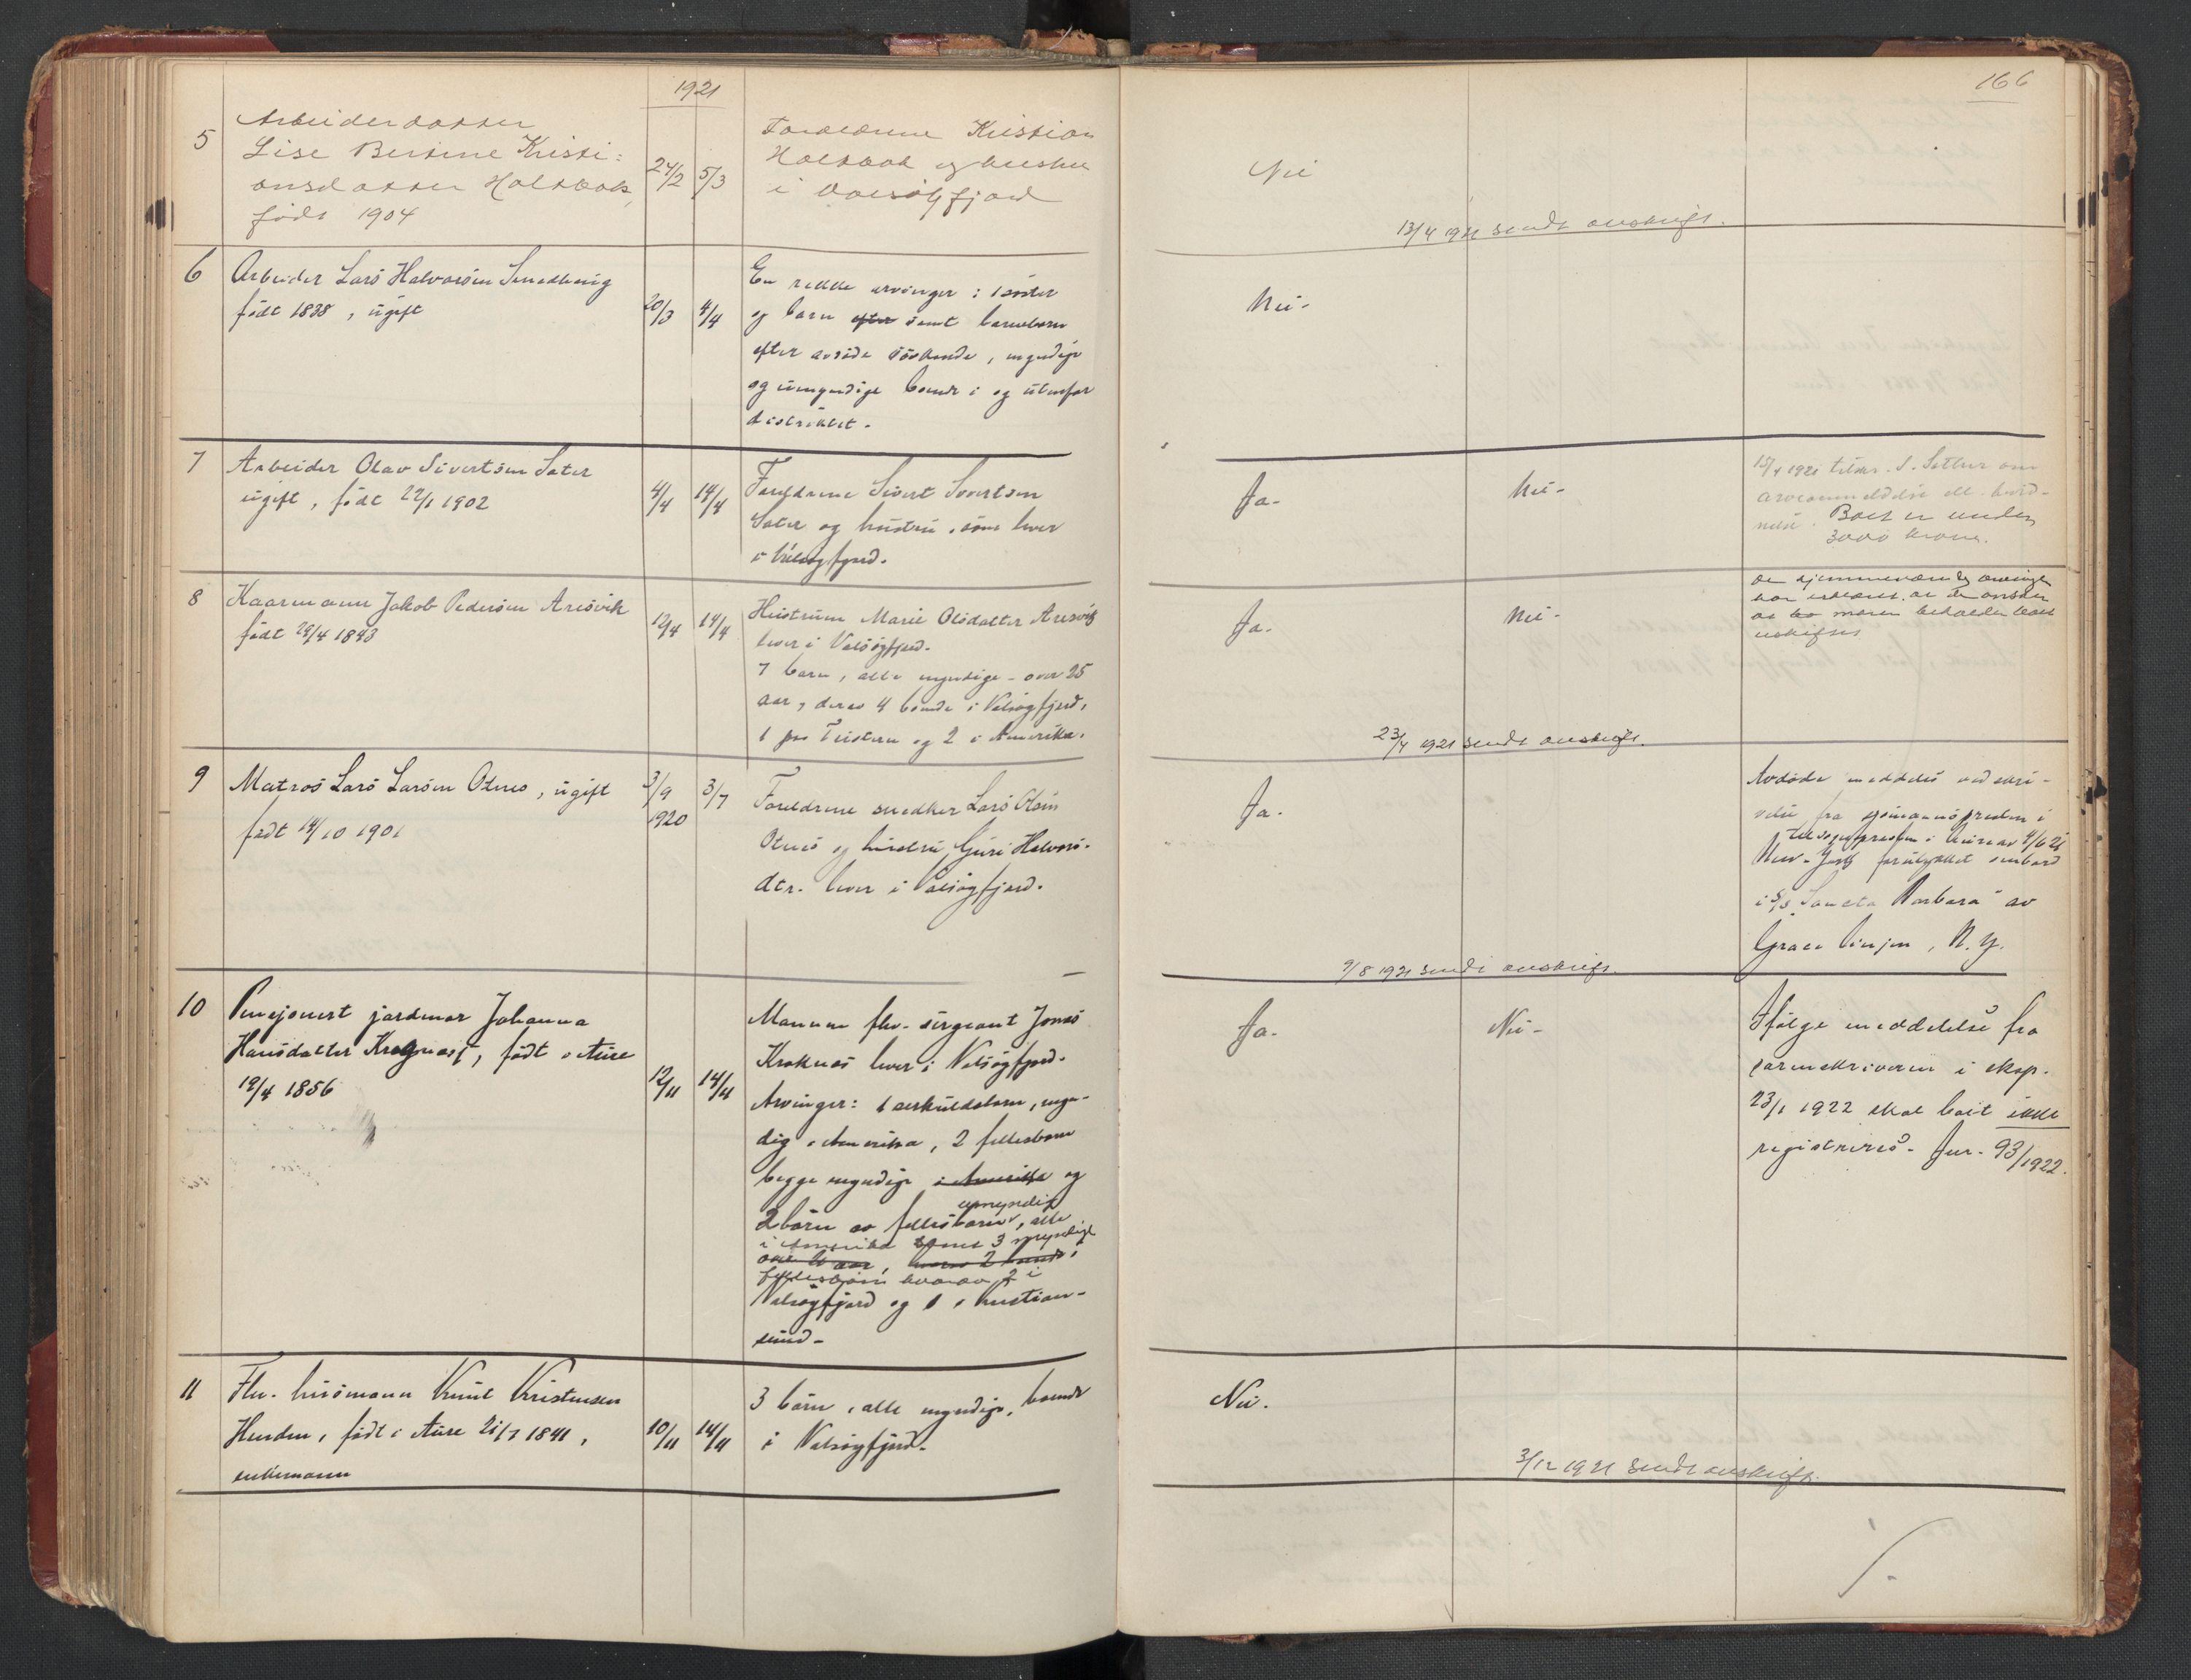 1921
166
5
Arbeiderdatter
Lise Bertine Kristi-
ansdatter Holtbak,
født 1904
24/2
5/3
Forældrene Kristian
Holtbak og hustru
i Valsøyfjord
Nei
13/4 1921 sendt avskrift.
6
Arbeider Lars Halvorsen
født 1838, ugift
20/3
4/4
En rekke arvinger: 1 søster
og barn efter samt barnebarn
efter avdøde søskende, myndige
og umyndige boende i og utenfor
distriktet.
Nei.
7
Arbeider Olav Sivertsen Sæter
ugift, født 22/1 1902
4/4
14/4
Foreldrene Sivert Sivertsen
Sæter og hustru, som lever
i Valsøyfjord.
Ja.
Nei.
15/4 1921 tilskr. S. Sæther om
arveanmeldelse ell.
Boet er under
3000 kroner.
8
Kaarmann Jakob Pedersen Aresvik
født 29/4 1843
12/4
14/4
Hustruen Marie Olsdatter Aresvik
lever i Valsøyfjord.
7 barn, alle myndige - over 25
aar, derav 4 boende i Valsøyfjord,
1 paa Tustern og 2 i Amerika.
Ja.
Nei.
De hjemmeværende arvinger
har erklæret at de ønsker
at moren beholder boet
uskiftet
23/4 1921 sendt avskrift.
9
Matros Lars Larsen Otnes, ugift
født 14/10 1901
3/9
1920
3/7
Foreldrene snedker Lars Olsen
Otnes og hustru Guri Halvors-
dtr. lever i Valsøyfjord.
Ja.
Avdøde meddeles ved skri-
velse fra sjømannspresten i
til sognepresten i Aure av 4/6 21
New-York forulykket ombord
i S/S "Sancta Barbara" av
Grace linjen, N.Y.
9/8 1921 sendt avskrift.
10
Pensjonert jordmor Johanna
Hansdatter Kroknes, født i Aure
19/4 1856
12/11
14/11
Mannen fhv. sergeant Jonas
Kroknes lever i Valsøyfjord.
Arvinger: 1 særkuldsbarn, myn-
dig i Amerika, 2 fellesbarn
begge myndige i Amerika og
umyndige
2 barn av fellesbarn, alle
i Amerika samt 3 myndige
fellesbarn hvorav 2 i
Valsøyfjord og 1 i Kristian-
sund.
Ja.
Nei.
Ifølge meddelelse fra
sorenskriveren i skop.
23/1 1922 skal boet ikke
registreres. Jur. 93/1922.
11
Fhv. husmann Knut Kristensen
Henden, født i Aure 21/7 1841,
enkemann
10/11
14/11
3 barn, alle myndige, boende
i Valsøyfjord.
Nei.
3/12 1921 sendt avskrift.